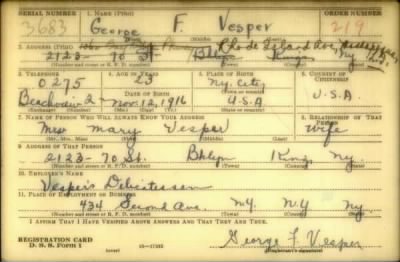 SERIAL NUMBER 1. NAME (Print) ORDER NUMBER
3683 George F. Vesper 219
(First) (Middle) (Last)
2. ADDRESS (Print) Rhode Island Ave,
2123- 70 St. Bklyn Kings Ny
(Number and street or R. F. D. number) (Town) (County) (State)
3. TELEPHONE 4. AGE IN YEARS 5. PLACE OF BIRTH 6. COUNTRY OF CITIZENSHIP
0275 23 Ny. City
DATE OF BIRTH
Beachview-2- Nov. 12, 1916 U.S.A U.S.A.
(Exchange) (Number) (Mo.) (Day) (Yr.) (State or country)
7. NAME OF PERSON WHO WILL ALWAYS KNOW YOUR ADDRESS 8. RELATIONSHIP OF THAT PERSON
Mrs Mary Vesper wife
(Mr., Mrs., Miss) (First) (Middle) (Last)
9. ADDRESS OF THAT PERSON
2123- 70 St. Bklyn Kings Ny.
(Number and street or R. F. D. number) (Town) (County) (State)
10. EMPLOYER'S NAME
Vesper's Delicatessen
11. PLACE OF EMPLOYMENT OR BUSINESS
434 Second Ave. N.Y. N.Y Ny.
(Number and street or R. F. D. number) (Town) (County) (State)
I AFFIRM THAT I HAVE VERIFIED ABOVE ANSWERS AND THAT THEY ARE TRUE.
REGISTRATION CARD
D. S. S. Form 1 George F. Vesper
(Registrant's signature)